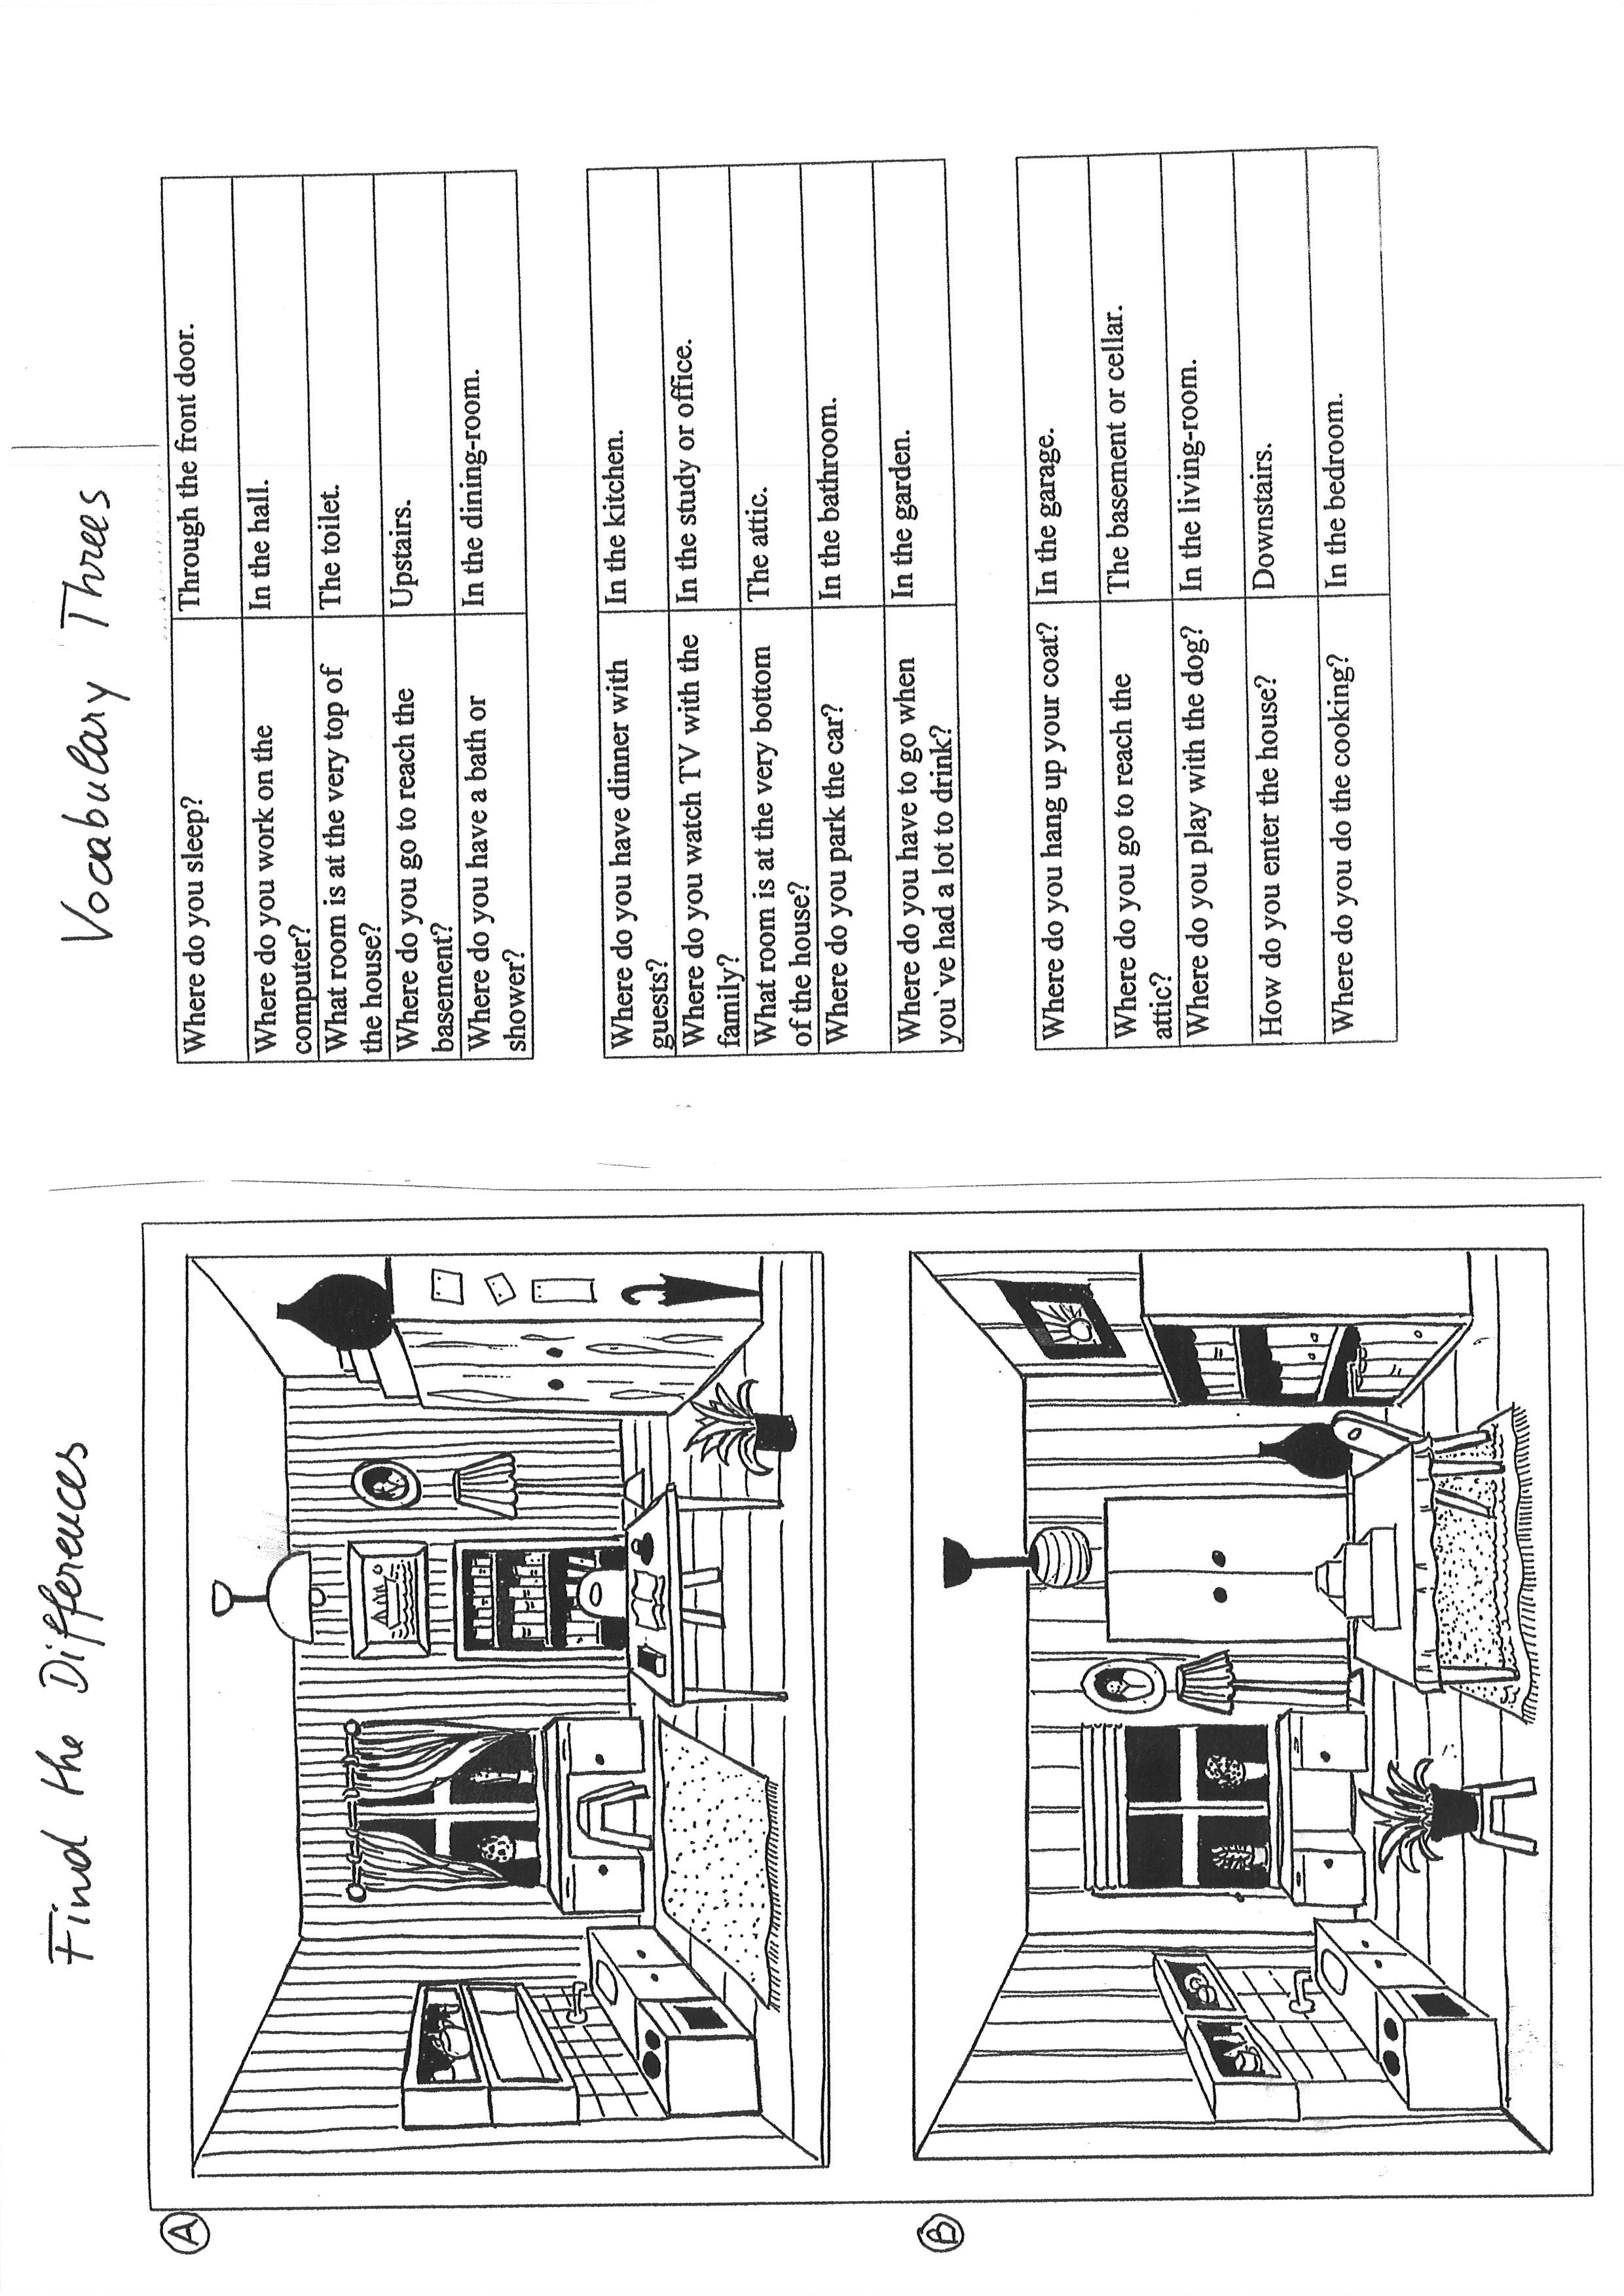 Find the Differences
A
B
Vocabulary Threes
Where do you sleep? Through the front door.
Where do you work on the In the hall.
computer?
What room is at the very top of The toilet.
the house?
Where do you go to reach the Upstairs.
basement?
Where do you have a bath or In the dining-room.
shower?
Where do you have dinner with In the kitchen.
guests?
Where do you watch TV with the In the study or office.
family?
What room is at the very bottom The attic.
of the house?
Where do you park the car? In the bathroom.
Where do you have to go when In the garden.
you`ve had a lot to drink?
Where do you hang up your coat? In the garage.
Where do you go to reach the The basement or cellar.
attic?
Where do you play with the dog? In the living-room.
How do you enter the house? Downstairs.
Where do you do the cooking? In the bedroom.